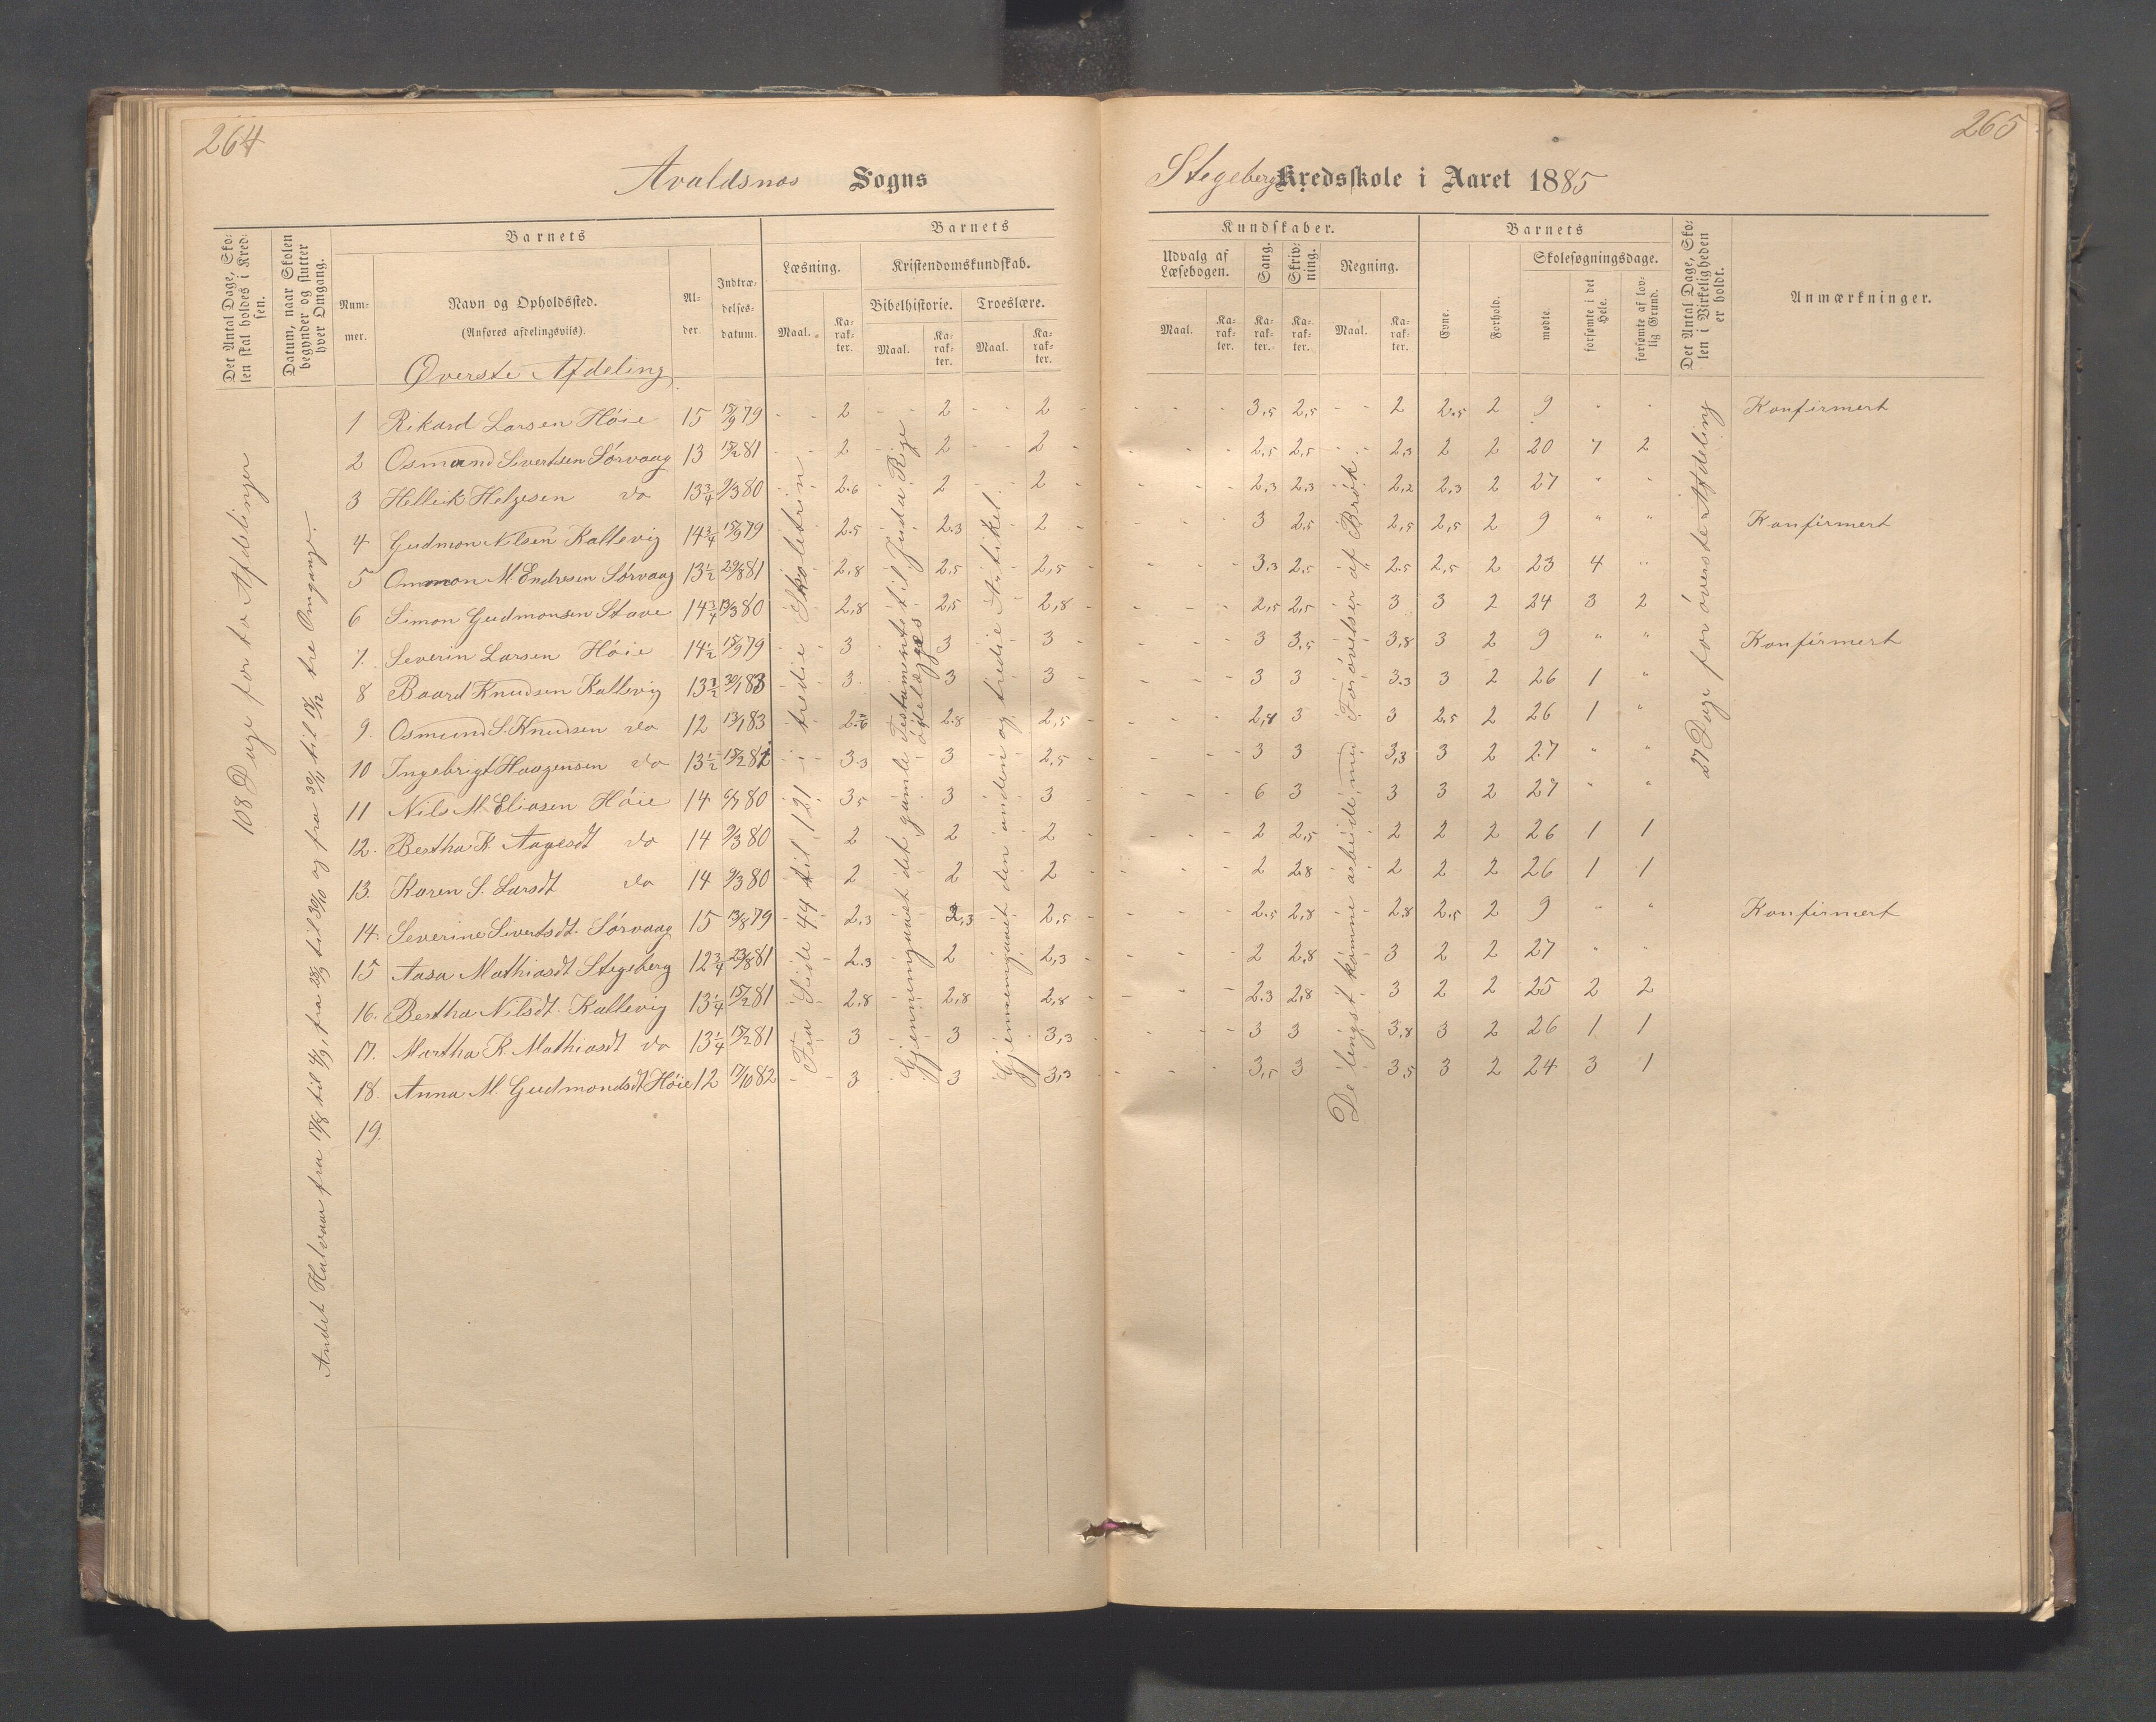 264
Avaldsnos Sogns
Det Antal Dage, Sko-
len skal holdes i Kred-
sen.
Datum, naar Skolen
begynder og slutter
hver Omgang.
Barnets
Num-
mer.
Navn og Opholdssted.
(Anføres afdelingsviis).
Al-
der.
Indtræ-
delses-
datum.
Barnets
Læsning.
Maal.
Ka-
rak-
ter.
Kristendomskundskab.
Bibelhistorie.
Maal.
Ka-
rak-
ter.
Troeslære.
Maal.
Ka-
rak-
ter.
Øverste Afdeling
1 Rikard Larsen Høie 15 15/9 79 - - 2 - - 2 - - 2
2 Osmund Sivertsen Sørvaag 13 15/2 81 2 2 2
3 Hellik Helgesen do 13 3/4 9/3 80 2.6 2 2
4 Gudmon Nilsen Kallevig 14 3/4 15/9 79 2.5 2.3 2
5 Ommon M. Endresen Sørvaag 13 1/2 29/8 81 2,8 2.5 2,5
6 Simon Gudmonsen Stave 14 3/4 13/3 80 2,8 2,5 2,8
7. Severin Larsen Høie 14 1/2 15/9 79 3 3 3
8 Baard Knudsen Kallevig 13 1/2 30/1 83 3. 3 3
9. Osmund S. Knudsen do 12 13/1 83 2.6 2.8 2,5
10 Ingebrigt Haagensen do 13 1/2 15/2 82 3.3 3 2,5
11 Nils M. Eliasen Høie 14 6/7 80 3,5 3 3
12. Bertha K. Aagesdt do 14 9/3 80 2 2 2
13. Karen S. Larsdt do 14 9/3 80 2 2 2
14. Severine Sivertsdt. Sørvaag 15 13/8 79 2.3 2,3 2,5
15 Aasa Mathiasdt Stegeberg 12 3/4 23/8 81 2.3 2 2,3
16. Bertha Nilsdt. Kallevig 13 1/4 15/2 81 2,8 2,8 2,8
17. Martha K. Mathiasdt do 13 1/4 15/2 81 3 3 3,3
18. Anna M. Gudmondsdt Høie 12 17/10 82 3 3 3,3
19.
108 Dage for to Afdelinger
Andet Halvaar fra 17/8 til 4/9, fra 28/9 til 30/10 og fra 30/11 til 18/12 tre Omgange.
Fra Side 44 til 121 tredie Skoletrin
Gjennemgaaet det gamle Testamente til Juda Rige
ødelægges
Gjennemgaaet den anden og tredie Artikel.
265
Stegeberg Kredsskole i Aaret 1885
Kundskaber.
Udvalg af
Læsebogen.
Maal.
Ka-
rak-
ter.
Sang.
Ka-
rak-
ter.
Skriv-
ning.
Ka-
rak-
ter.
Regning.
Maal.
Ka-
rak-
ter.
Barnets
Evne.
Forhold.
Skolesøgningsdage.
mødte.
forsømte i det
Hele.
forsømte af lov-
lig Grund.
Det Antal Dage, Sko-
len i Virkeligheden
er holdt.
Anmærkninger.
3,5 2,5 2 2.5 2 9 - - Konfirmert
2,5 2,5 2,3 2 2 20 7 2
2,3 2.3 2,2 2,3 2 27 " "
3 2,5 2,5 2,5 2 9 " " Konfirmert
3.3 2,5 2.5 2,5 2 23 4 "
2,5 2,5 3 3 2 24 3 2
3 3,5 3,8 3 2 9 " " Konfirmert
3 3 3.3 3 2 26 1 "
2,8 3 3 2.5 2 26 1 "
3 3 3,3 3 2 27 " "
6 3 3 3 2 27 " "
2 2,5 2 2 2 26 1 1
2 2.8 2 2 2 26 1 1
2.5 2,8 2.8 2.5 2 9 " " Konfirmert
2 2,8 3 2 2 27 " "
2.3 2,8 3 2 2 25 2 2
3 3 3,8 3 2 26 1 1
3,5 3 3,5 3 2 24 3 1
De lingst komne arbeide med Forøvelser af Brøk.
27 Dage for øverste Afdeling